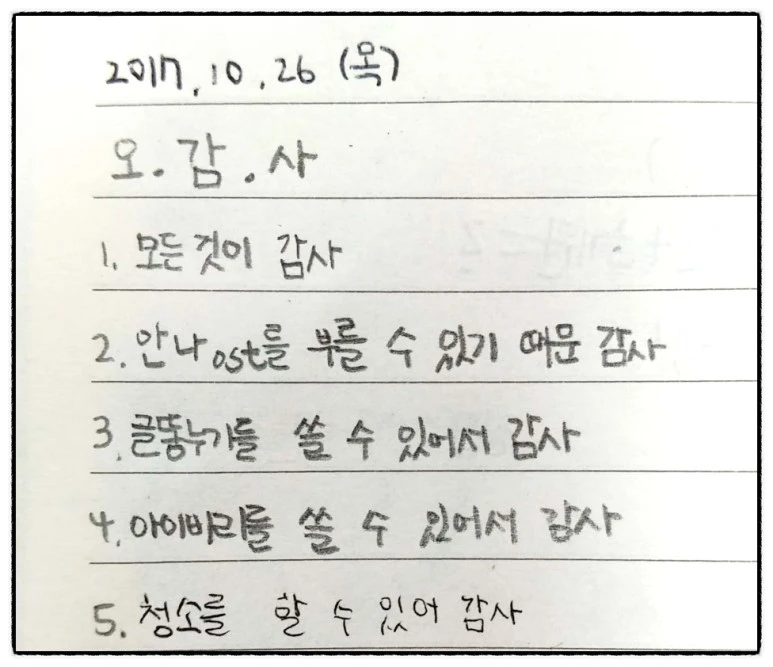 2017.10.26 (목)
오.감.사
1. 모든것이 감사
2. 안나ost를 부를 수 있기 때문 감사
3. 글똥누기를 쓸 수 있어서 감사
4. 아이비리를 쓸 수 있어서 감사
5. 청소를 할 수 있어 감사